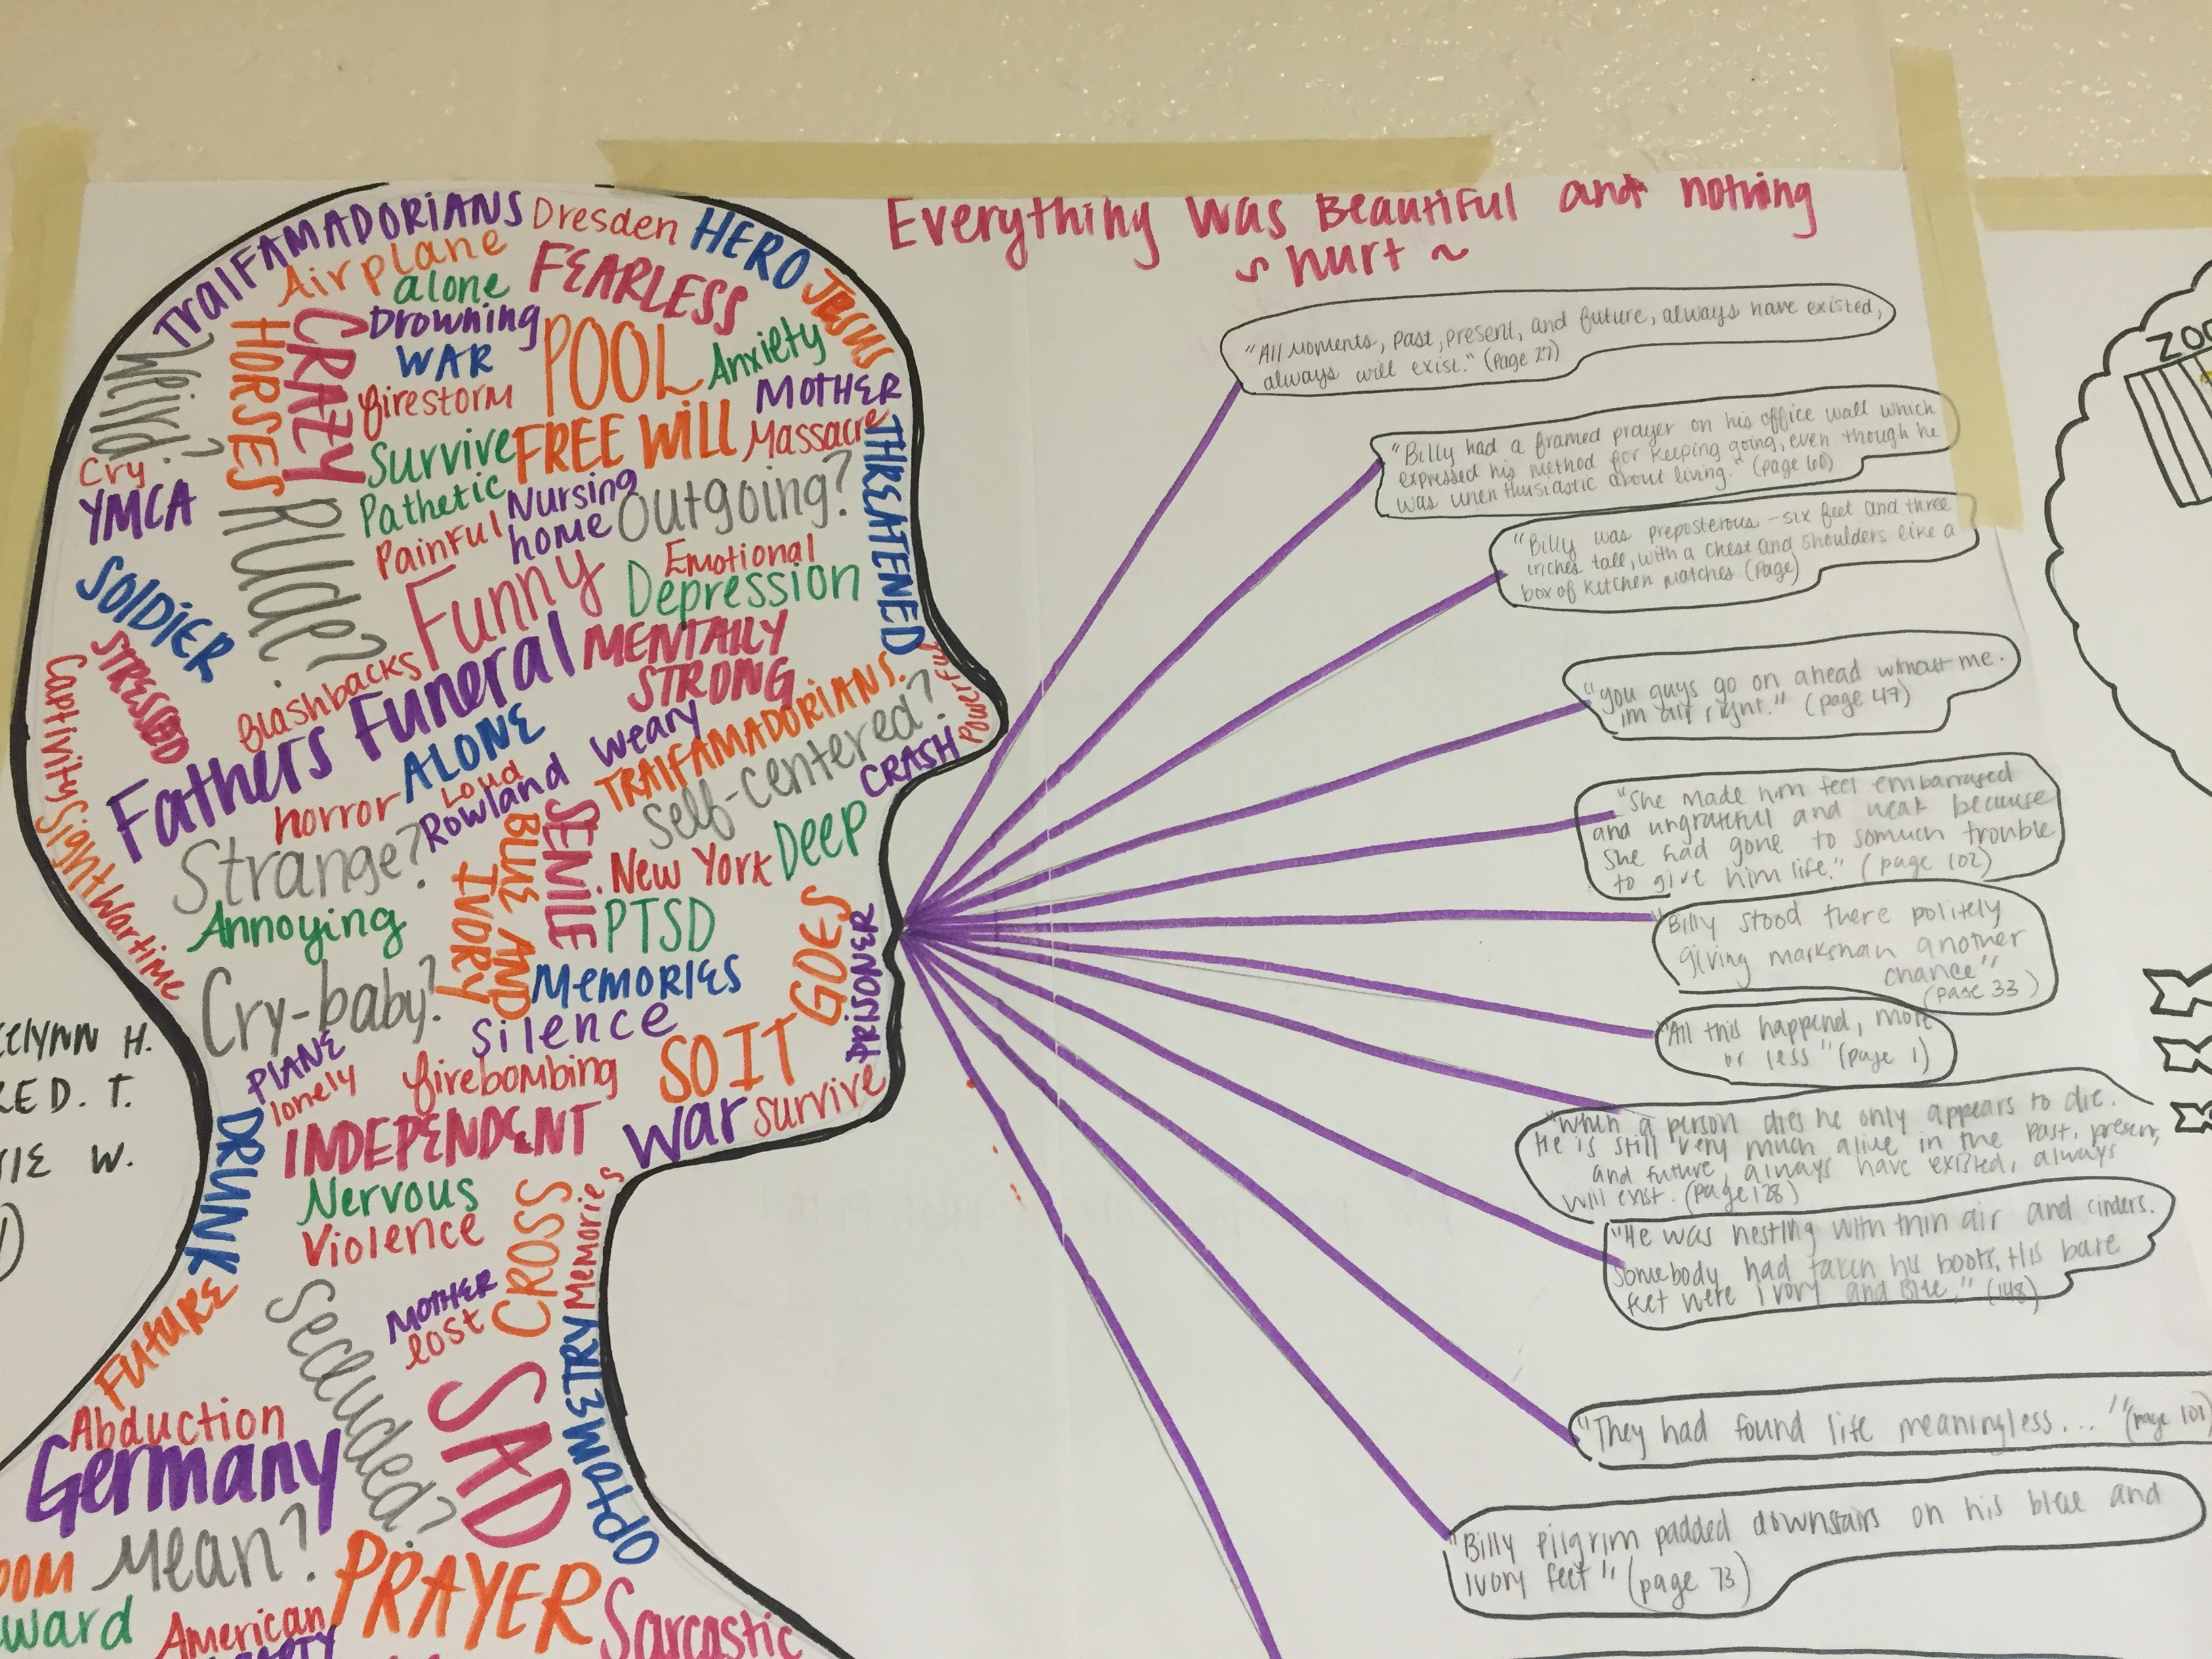 Everything was Beautiful and nothing
~ hurt ~
TralFAMADORIANS
Dresden
HERO
Jesus
Airplane
alone
FEARLESS
Drowning
WAR
POOL
Anxiety
HORSES
CRAZY
Weird?
firestorm
MOTHER
Survive
FREE WILL
Massacre
THREATENED
Cry
YMCA
RUDE?
Pathetic
Nursing
home
Outgoing?
Painful
Emotional
Depression
SOLDIER
STRESSED
Funny
MENTALLY
STRONG
flashbacks
Fathers Funeral
Captivity
ALONE
Loud
Rowland Weary
TRAlFAMADORIANS.
Self-centered?
Powerful
CRASH
horror
Strange?
BLUE AND
IVORY
SENILE
New York
Deep
Sight
Wartime
Annoying
PTSD
Cry-baby?
Memories
SO IT
GOES
PRISONER
Silence
PLANE
lonely
firebombing
INDEPENDENT
War
survive
DRUNK
Nervous
Violence
CROSS
Memories
FUTURE
Secluded?
MOTHER
lost
SAD
OPTOMETRY
Abduction
Germany
Mean?
OOM
PRAYER
ward
American
Sarcastic
ELYNN H.
ED. T.
IE W.
"All moments, past, present, and future, always have existed,
always will exist." (Page 27)
"Billy had a framed prayer on his office wall which
expressed his method for keeping going, even though he
was unenthusiastic about living." (page 60)
"Billy was preposterous - six feet and three
inches tall, with a chest and shoulders like a
box of kitchen matches. (Page)
"you guys go on ahead without me.
im all right." (page 47)
"She made him feel embarrased
and ungrateful and weak because
she had gone to somuch trouble
to give him life." (page 102)
"Billy stood there politely
giving marksman another
chance"
(page 33)
"All this happend, more
or less" (page 1)
"When a person dies he only appears to die.
He is still very much alive in the past, present,
and future, always have existed, always
will exist. (page 128)
"He was nestling with thin air and cinders.
Somebody had taken his boots, His bare
feet were Ivory and Blue." (148)
"They had found life meaningless..." (page 101)
"Billy pilgrim padded downstairs on his blue and
ivory feet" (page 73)
ZOO